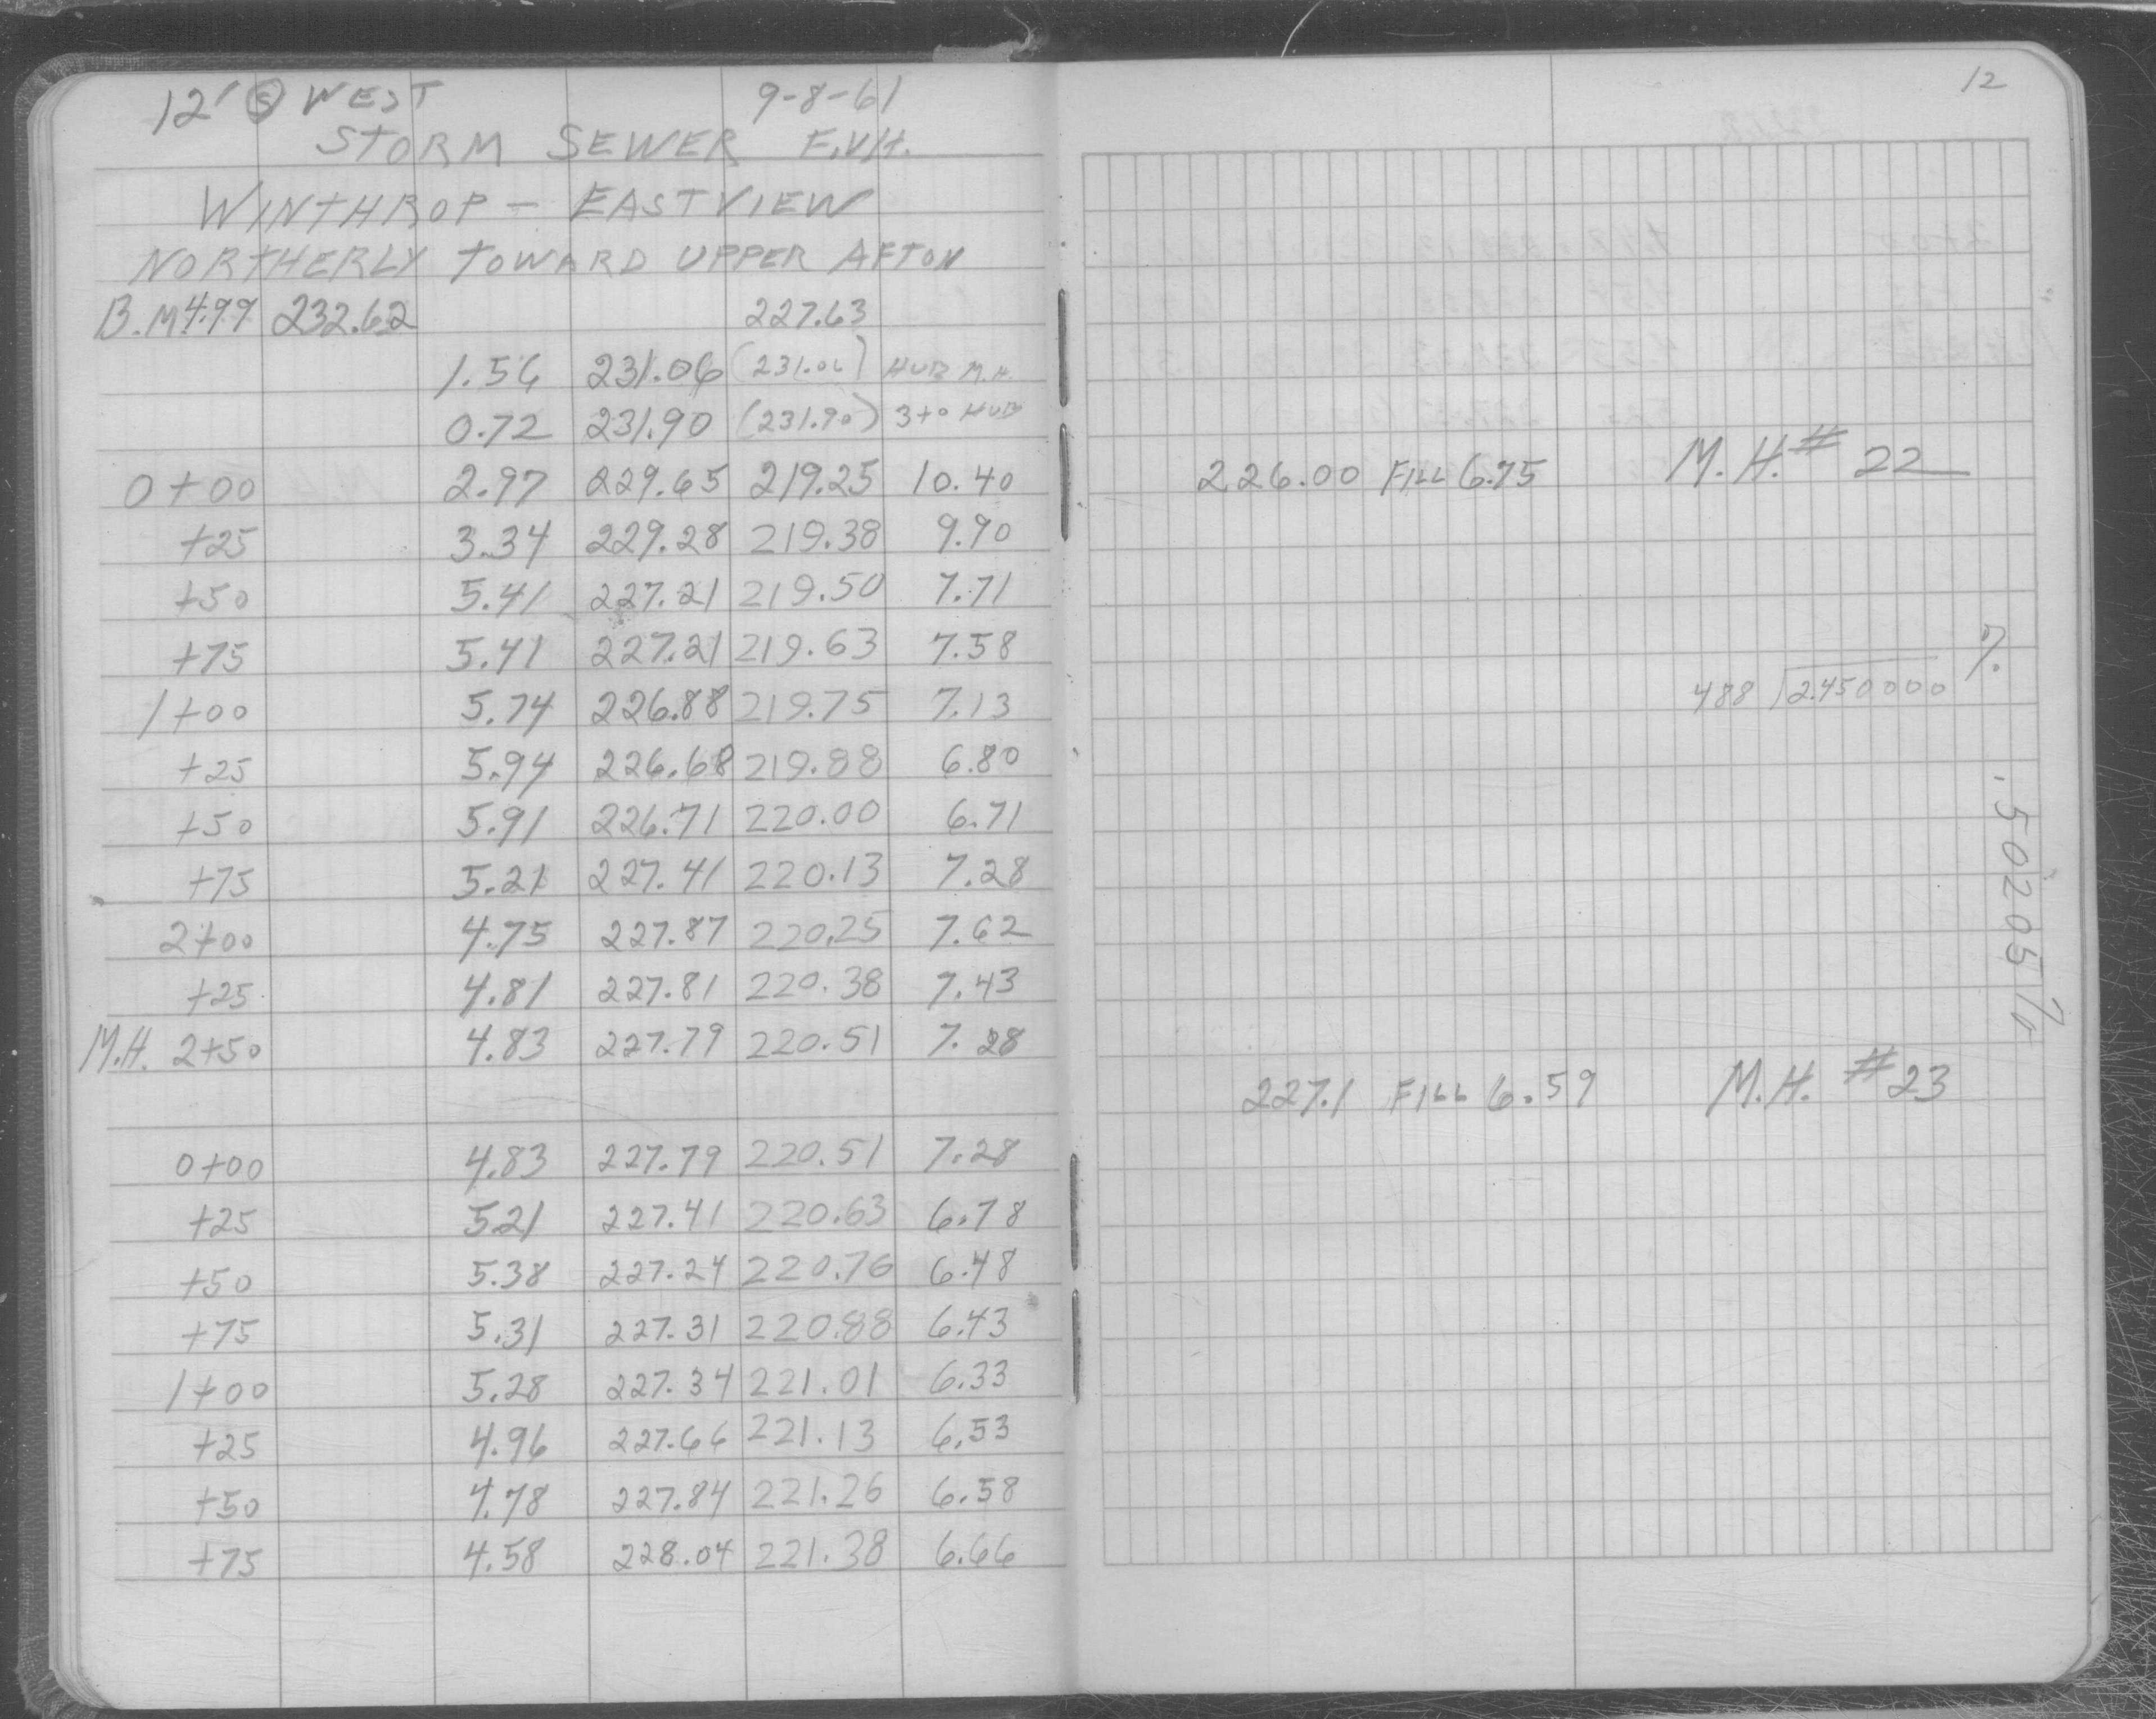 12' Ⓢ WEST 9-8-61
STORM SEWER E.V.H.
WINTHROP - EASTVIEW
NORTHERLY TOWARD UPPER AFTON
B.M 4.99 232.62 227.63
1.56 231.06 (231.06) HUB M.H.
0.72 231.90 (231.90) 3+0 HUB
0+00 2.97 229.65 219.25 10.40
+25 3.34 229.28 219.38 9.90
+50 5.41 227.21 219.50 7.71
+75 5.41 227.21 219.63 7.58
1+00 5.74 226.88 219.75 7.13
+25 5.94 226.68 219.88 6.80
+50 5.91 226.71 220.00 6.71
+75 5.21 227.41 220.13 7.28
2+00 4.75 227.87 220.25 7.62
+25 4.81 227.81 220.38 7.43
M.H. 2+50 4.83 227.79 220.51 7.28
0+00 4.83 227.79 220.51 7.28
+25 5.21 227.41 220.63 6.78
+50 5.38 227.24 220.76 6.48
+75 5.31 227.31 220.88 6.43
1+00 5.28 227.34 221.01 6.33
+25 4.96 227.66 221.13 6.53
+50 4.78 227.84 221.26 6.58
+75 4.58 228.04 221.38 6.66
12
226.00 FILL 6.75 M.H. # 22
488 2.450000
%
.50205
227.1 FILL 6.59 M.H. #23